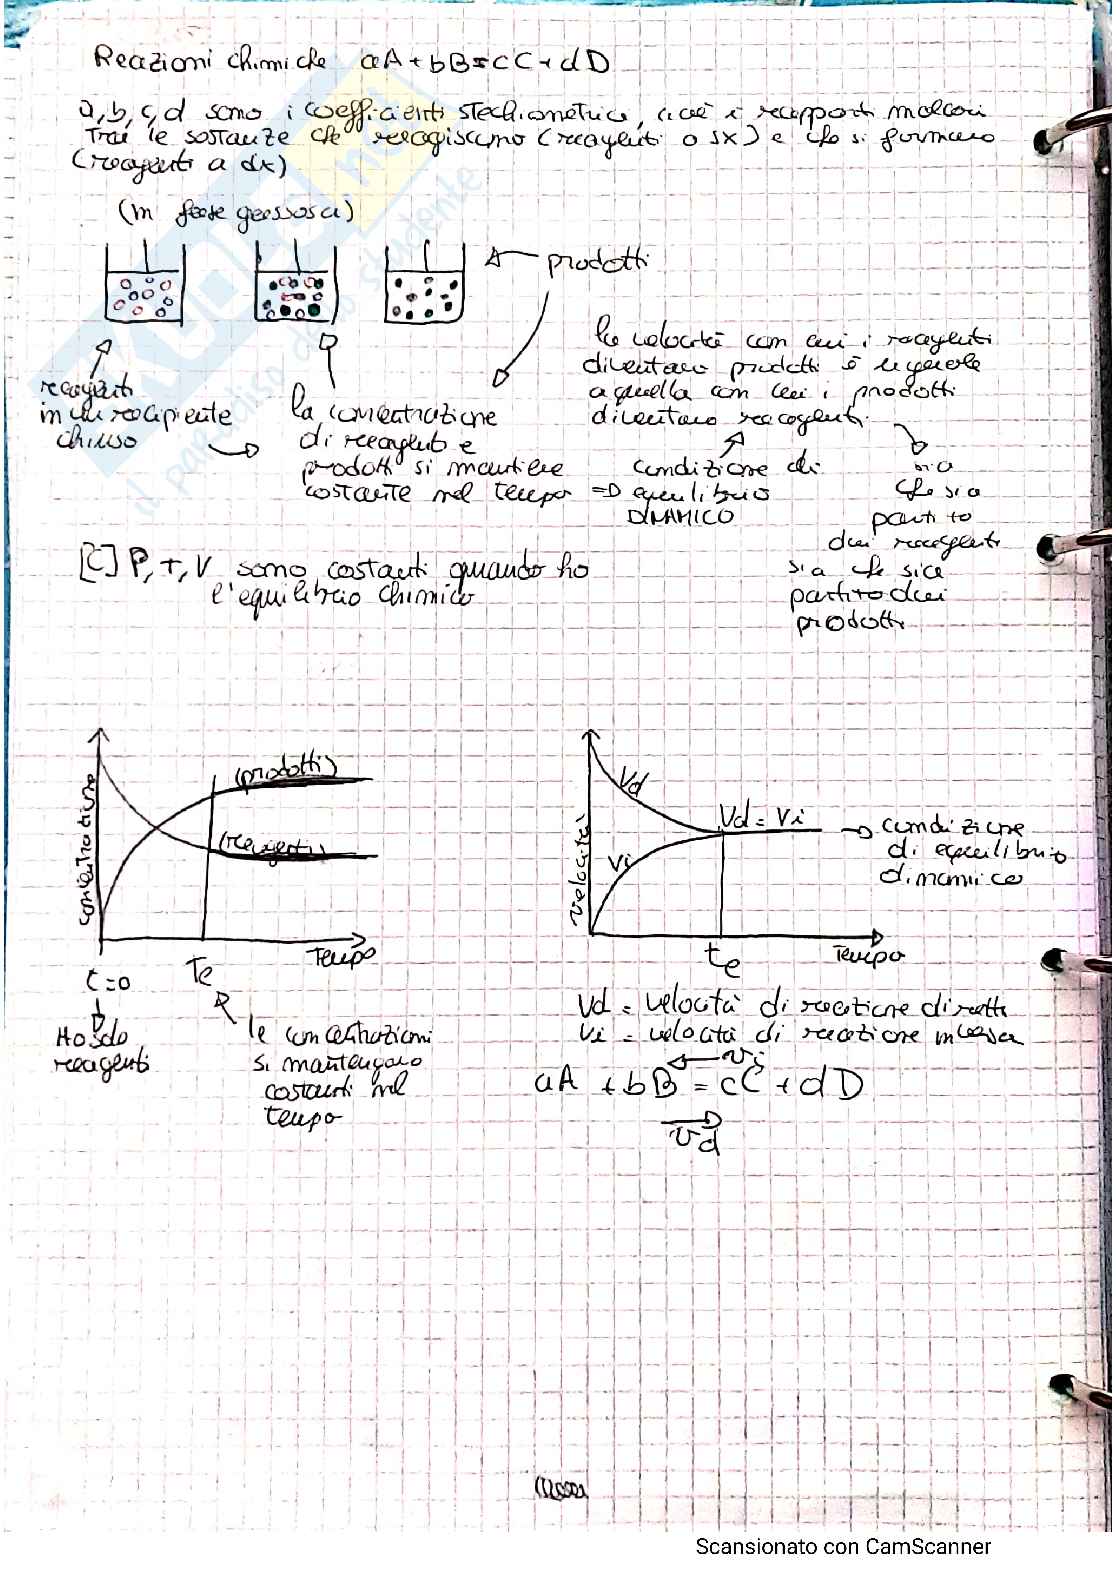 Reazioni chimiche aA + bB = cC + dD
a, b, c, d sono i coefficienti stechiometrici, cioè i rapporti molari
tra le sostanze che reagiscono (reagenti a sx) e che si formano
(reagenti a dx)
(in fase gassosa)
prodotti
reagenti
in un recipiente
chiuso
la concentrazione
di reagenti e
prodotti si mantiene
costante nel tempo =>
la velocità con cui i reagenti
diventano prodotti è uguale
a quella con cui i prodotti
diventano reagenti
condizione di
equilibrio
DINAMICO
sia
che sia
partito
dai reagenti
sia che sia
partito dai
prodotti
[C] P, T, V sono costanti quando ho
l'equilibrio chimico
concentrazione
(prodotti)
(reagenti)
Tempo
t=0
Te
Ho solo
reagenti
le concentrazioni
si mantengono
costanti nel
tempo
velocità
Vd
Vi
Vd = Vi
condizione
di equilibrio
dinamico
te
Tempo
Vd = velocità di reazione diretta
Vi = velocità di reazione inversa
vi
aA + bB = cC + dD
vd
Scansionato con CamScanner